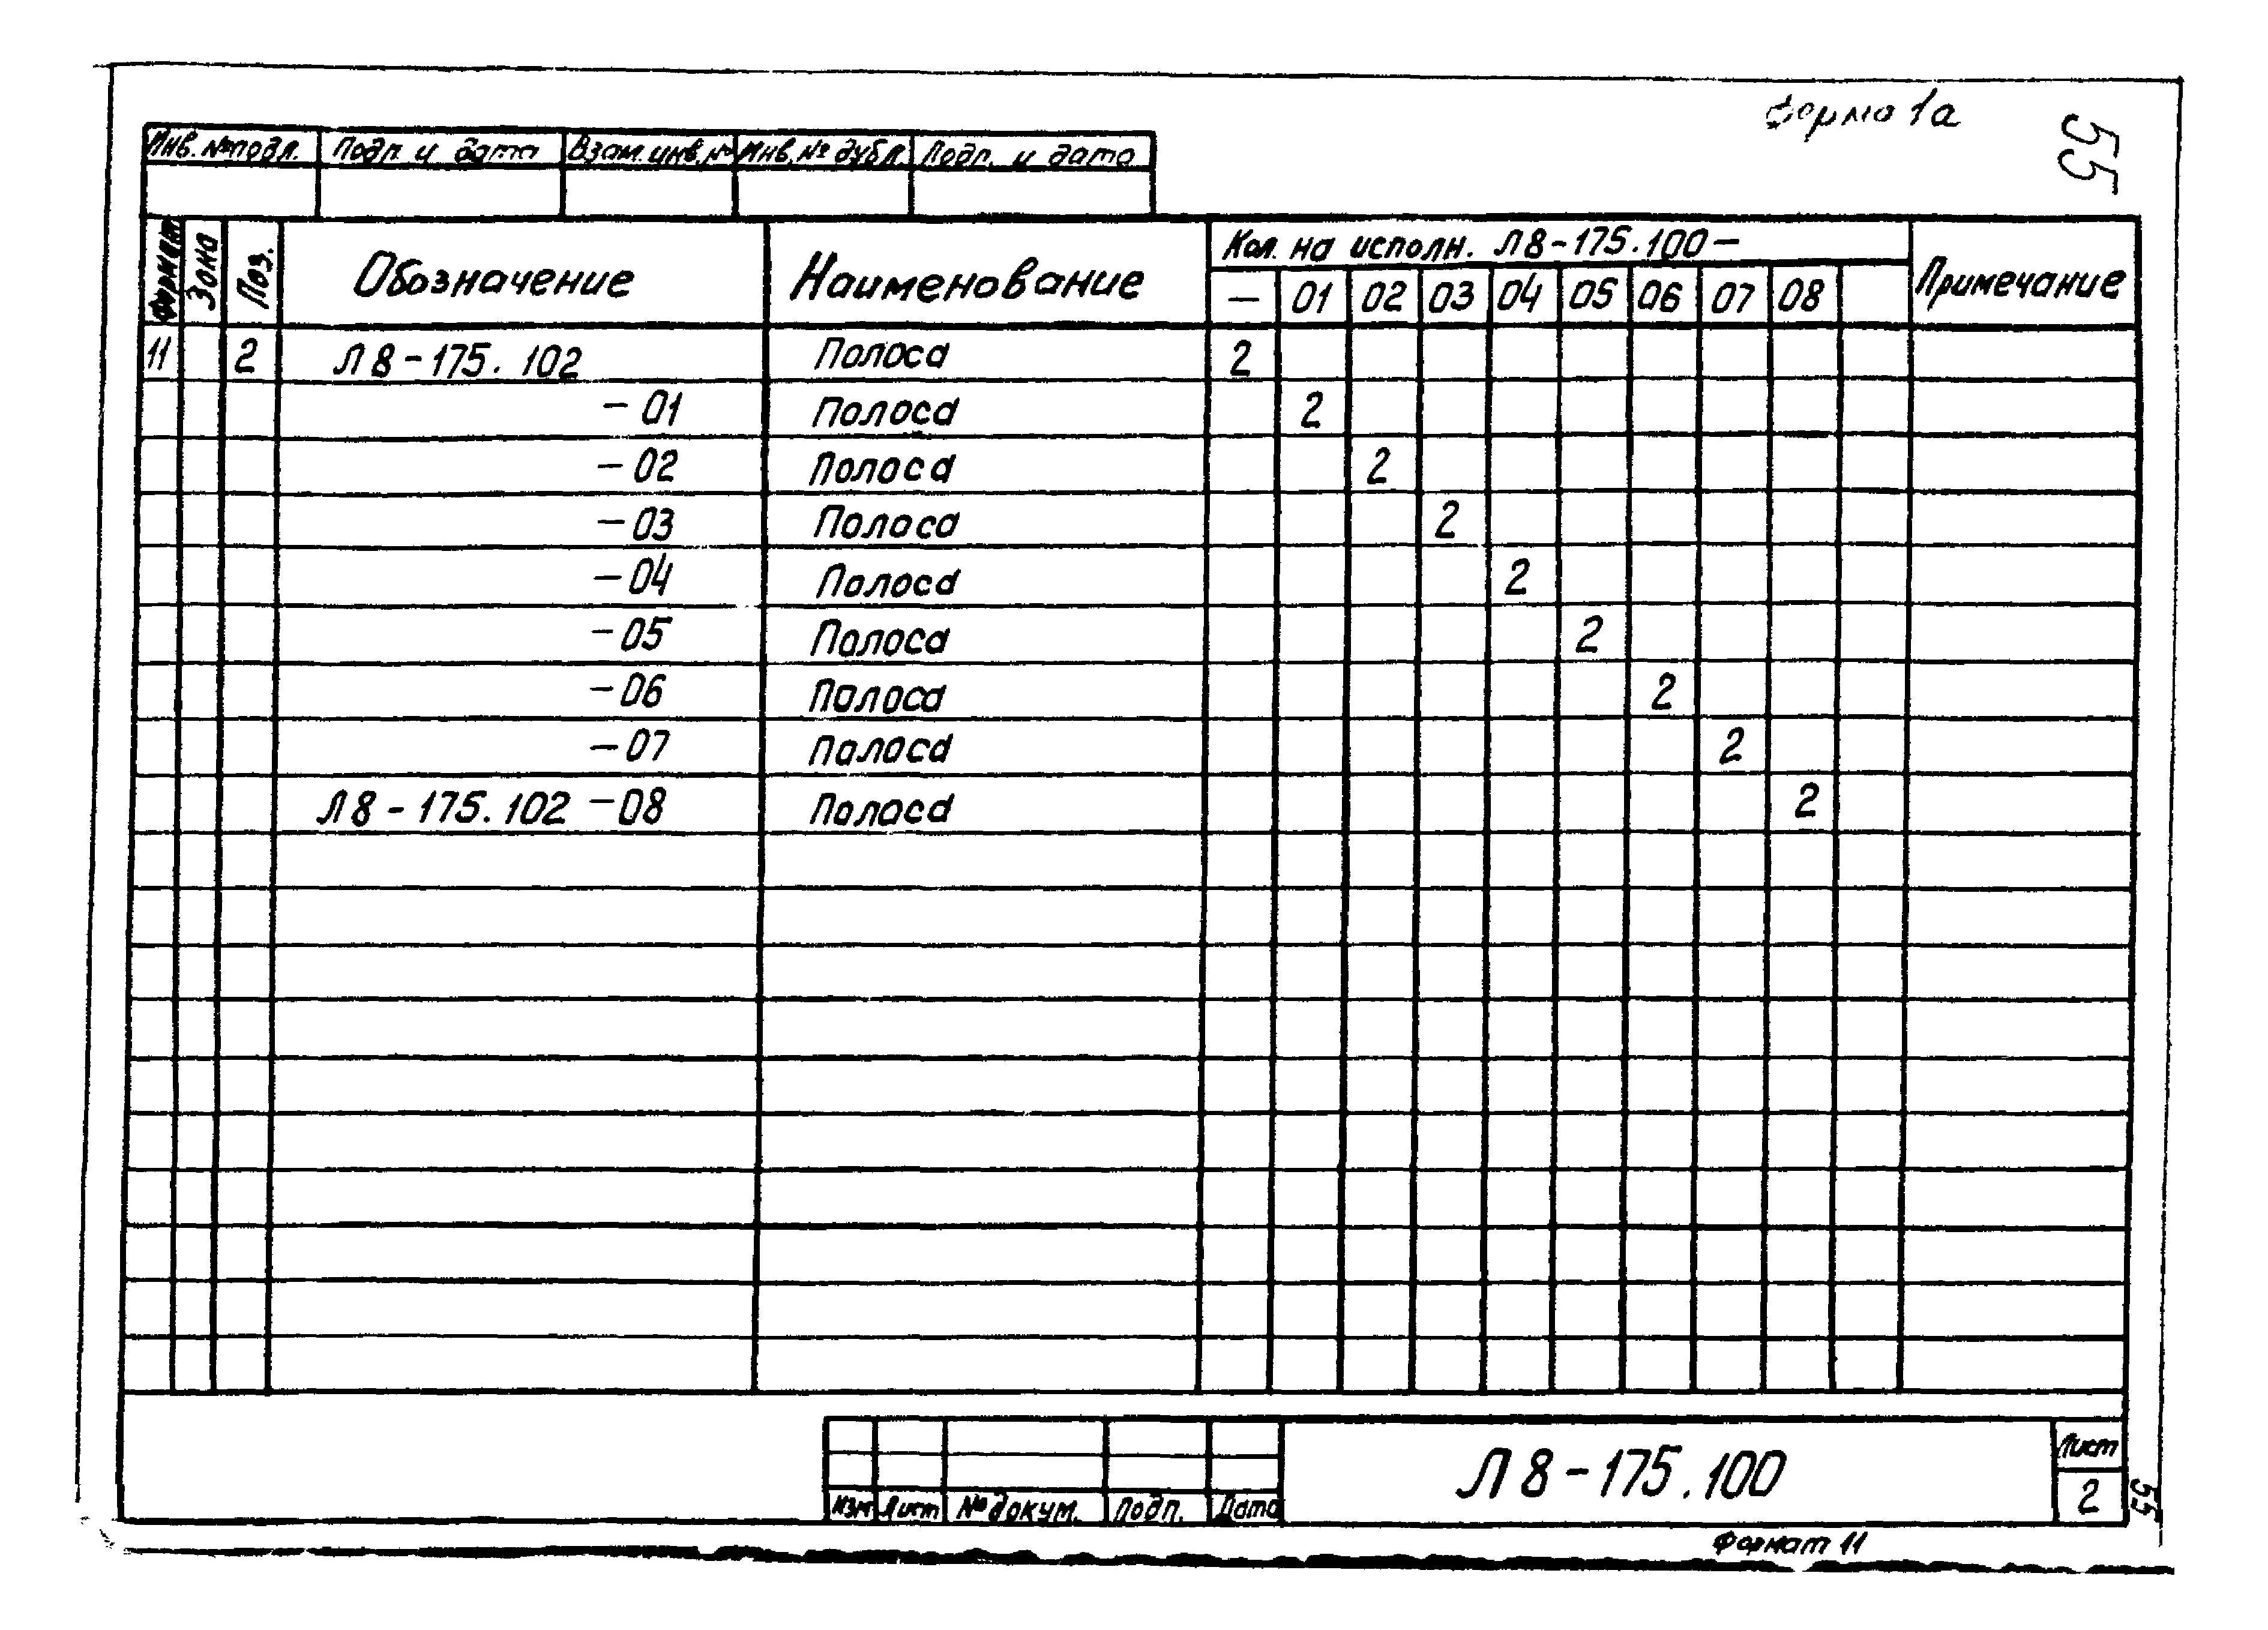 Форма 1а
55
Инв. № подл. Подп. и дата Взам. инв. № Инв. № дубл. Подп. и дата
Формат Зона Поз. Обозначение Наименование Кол. на исполн. Л8-175.100- Примечание
— 01 02 03 04 05 06 07 08
11 2 Л8-175.102 Полоса 2
-01 Полоса 2
-02 Полоса 2
-03 Полоса 2
-04 Полоса 2
-05 Полоса 2
-06 Полоса 2
-07 Полоса 2
Л8-175.102-08 Полоса 2
Изм Лист № докум. Подп. Дата
Л8-175.100
Лист
2
55
Формат 11